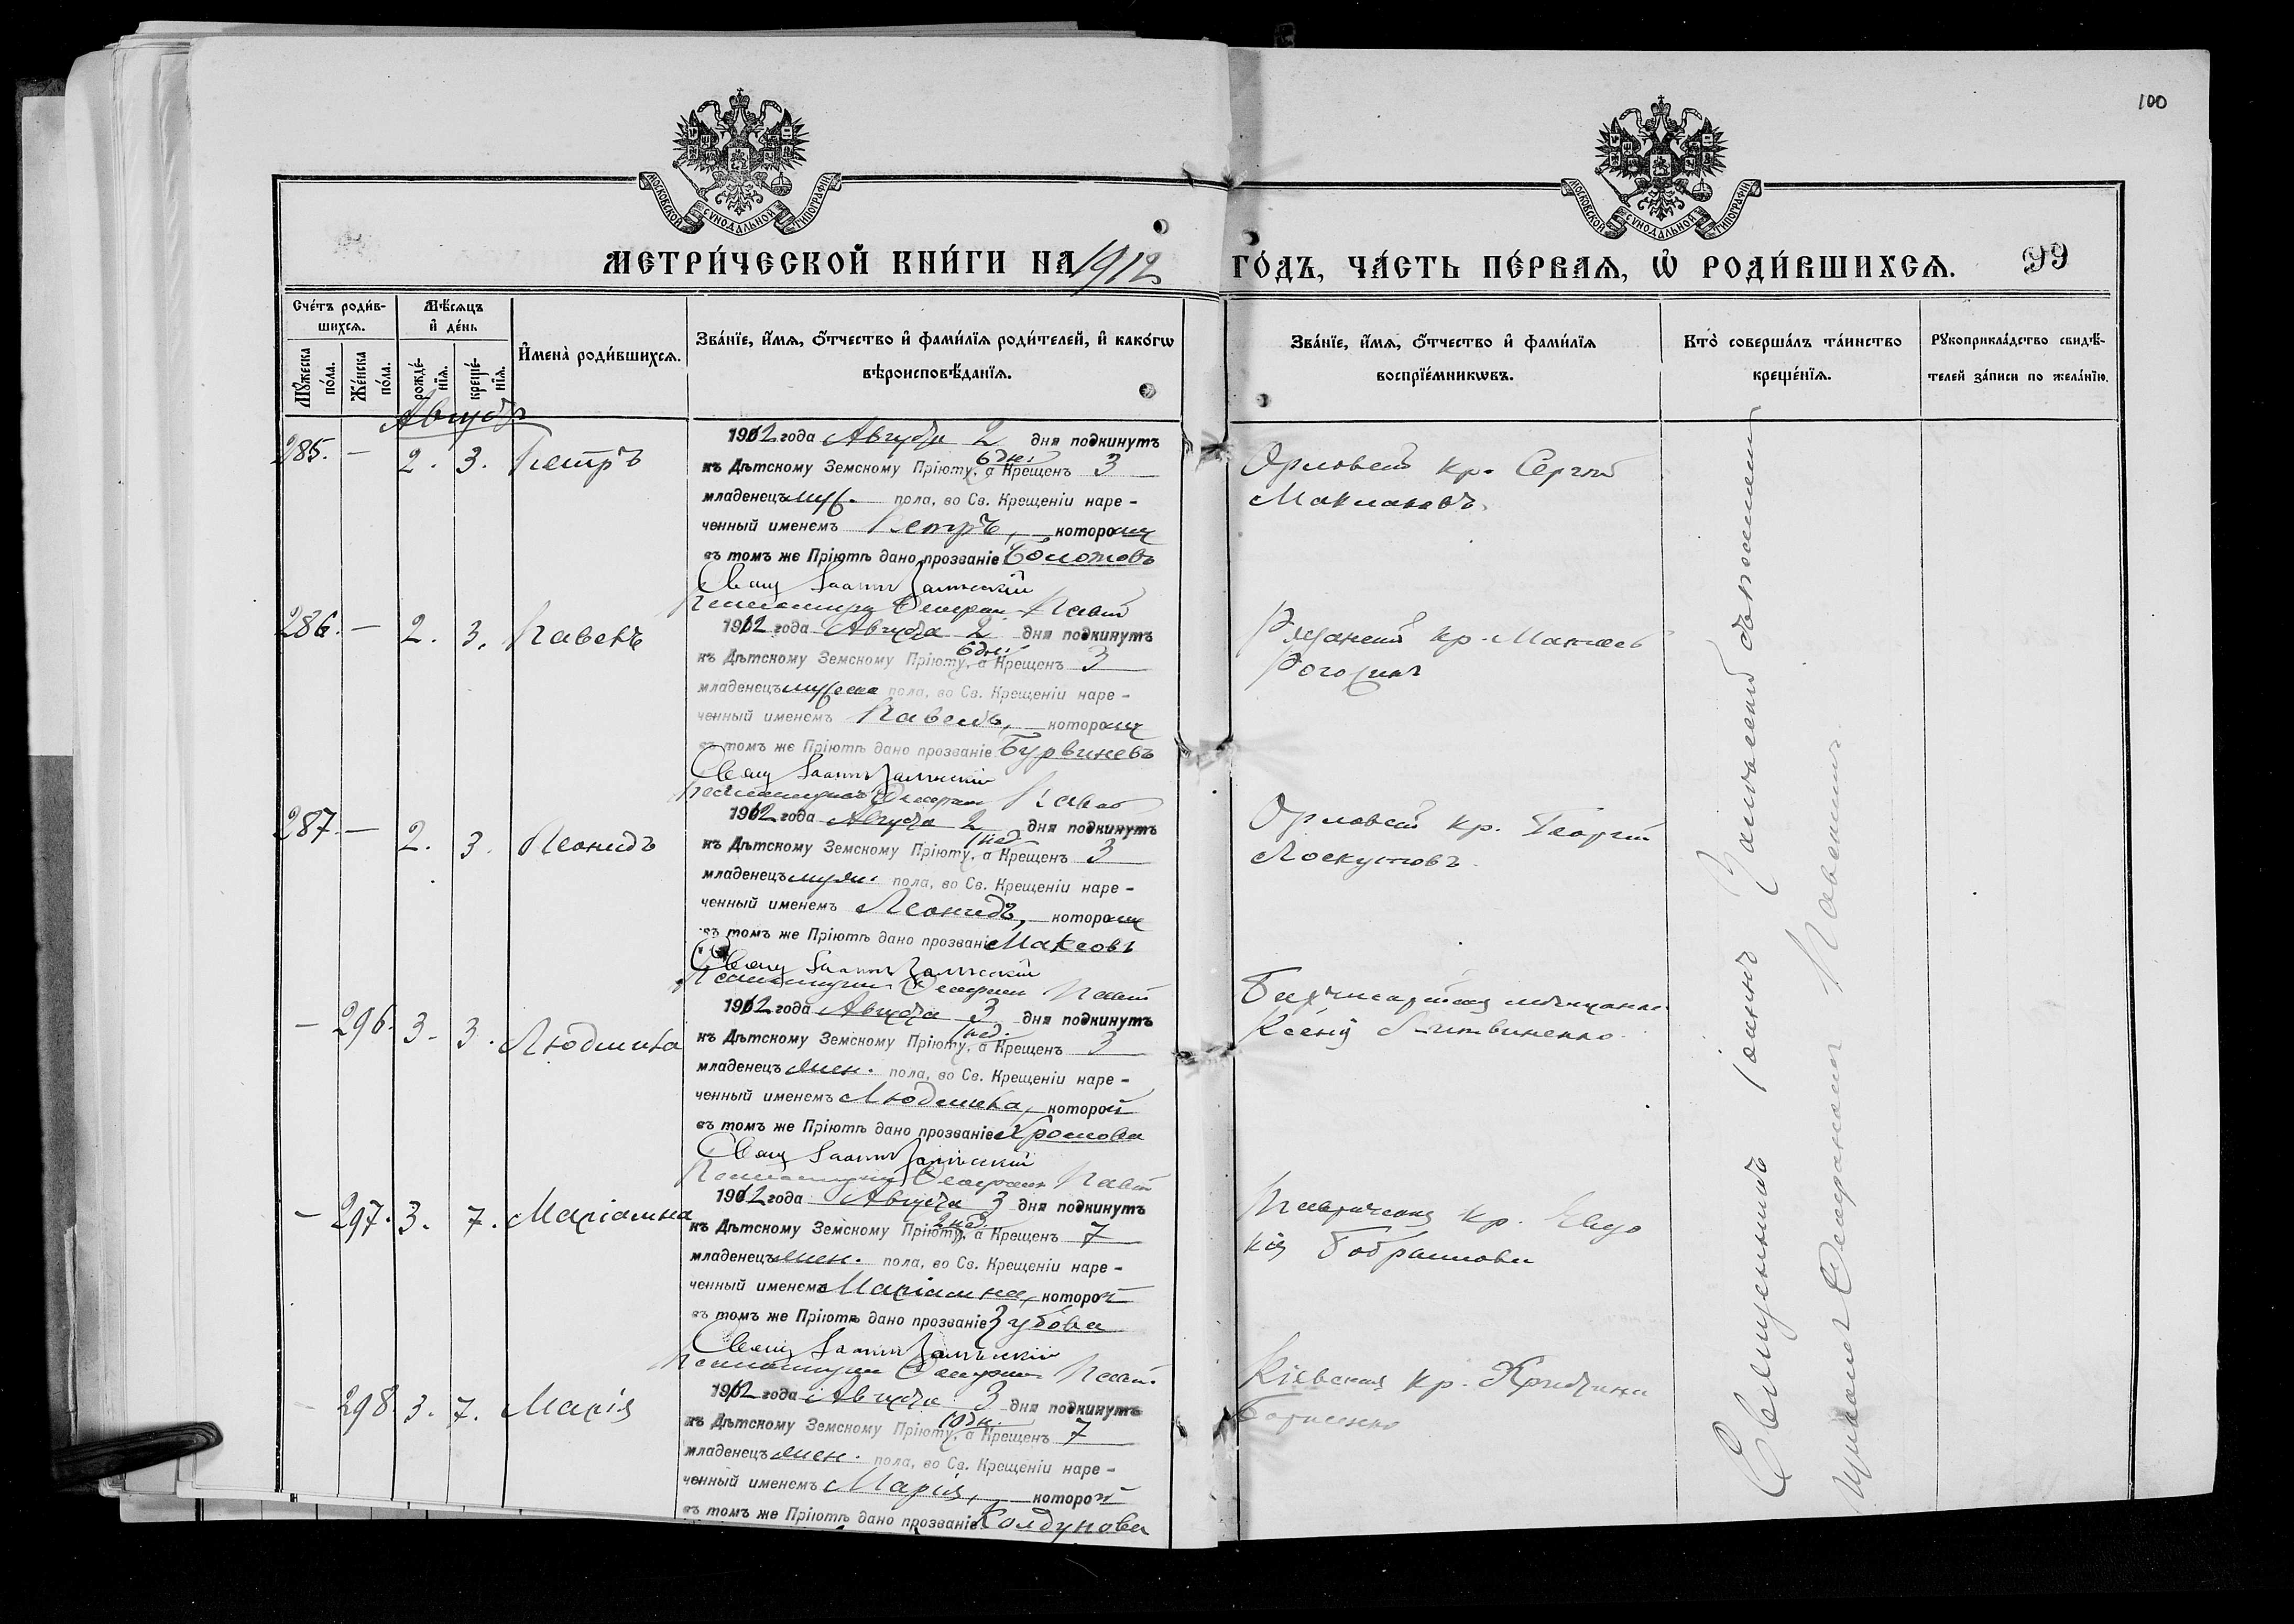 100
МОСКОВСКОЙ СѴНОДАЛЬНОЙ ТИПОГРАФІИ
МОСКОВСКОЙ СѴНОДАЛЬНОЙ ТИПОГРАФІИ
МЕТРИ́ЧЕСКОЙ КНИ́ГИ НА 1912 ГО́ДЪ, ЧА́СТЬ ПЕ́РВАѦ, Ѡ҆ РОДИ́ВШИХСѦ. 99
Сче́тъ роди́в-
шихсѧ.
Мꙋ́жеска
по́ла.
Же́нска
по́ла.
Мѣ́сѧцъ
и҆ де́нь
рожде́-
нїѧ.
креще́-
нїѧ.
И҆мена̀ роди́вшихсѧ.
Зва́нїе, и҆́мѧ, ѻ҆́тчество и҆ фами́лїѧ роди́телей, и҆ како́гѡ
вѣроисповѣ́данїѧ.
Зва́нїе, и҆́мѧ, ѻ҆́тчество и҆ фами́лїѧ
воспрїе́мникѡвъ.
Кто̀ соверша́лъ та́инство
креще́нїѧ.
Рꙋкоприкла́дство свидѣ́-
телей за́писи по жела́нїю.
Августъ
285. — 2. 3. Петръ
1912 года Августа 2 дня подкинутъ
къ Дѣтскому Земскому Пріюту, 6 дн. а Крещенъ 3
младенецъ муж. пола, во Св. Крещеніи наре-
ченный именемъ Петръ, которому
въ томъ же Пріютѣ дано прозваніе Болотовъ
Свящ Іоаннъ Залѣсскій
Псаломщикъ
Орловскій кр. Сергій
Маклаковъ.
286. — 2. 3. Павелъ
1912 года Августа 2 дня подкинутъ
къ Дѣтскому Земскому Пріюту, 6 дн. а Крещенъ 3
младенецъ мужеска пола, во Св. Крещеніи наре-
ченный именемъ Павелъ, которому
въ томъ же Пріютѣ дано прозваніе Бурвиневъ
Свящ Іоаннъ Залѣсскій
Псаломщикъ
Рязанскій кр.
Рогозинъ
287. — 2. 3. Леонидъ
1912 года Августа 2 дня подкинутъ
къ Дѣтскому Земскому Пріюту, 1 нед. а Крещенъ 3
младенецъ муж. пола, во Св. Крещеніи наре-
ченный именемъ Леонидъ, которому
въ томъ же Пріютѣ дано прозваніе Максовъ
Свящ Іоаннъ Залѣсскій
Псаломщикъ
Орловскій кр. Георгій
Лоскутовъ.
— 296. 3. 3. Людмила
1912 года Августа 3 дня подкинутъ
къ Дѣтскому Земскому Пріюту, 1 нед. а Крещенъ 3
младенецъ жен. пола, во Св. Крещеніи наре-
ченный именемъ Людмила, которой
въ томъ же Пріютѣ дано прозваніе Хромова
Свящ Іоаннъ Залѣсскій
Псаломщикъ
Бахчисарайская мѣщанка
Ксенія Литвиненко.
— 297. 3. 7. Маріамна
1912 года Августа 3 дня подкинутъ
къ Дѣтскому Земскому Пріюту, 2 нед. а Крещенъ 7
младенецъ жен. пола, во Св. Крещеніи наре-
ченный именемъ Маріамна, которой
въ томъ же Пріютѣ дано прозваніе Зубова
Свящ Іоаннъ Залѣсскій
Псаломщикъ
Таврическая кр. Евдо
кія
— 298. 3. 7. Марія
1912 года Августа 3 дня подкинутъ
къ Дѣтскому Земскому Пріюту, 10 дн. а Крещенъ 7
младенецъ жен. пола, во Св. Крещеніи наре-
ченный именемъ Марія, которой
въ томъ же Пріютѣ дано прозваніе Колдунова
Кіевская кр. Христина
Борисенко
Священникъ Іоаннъ Залѣсскій съ псаломщ